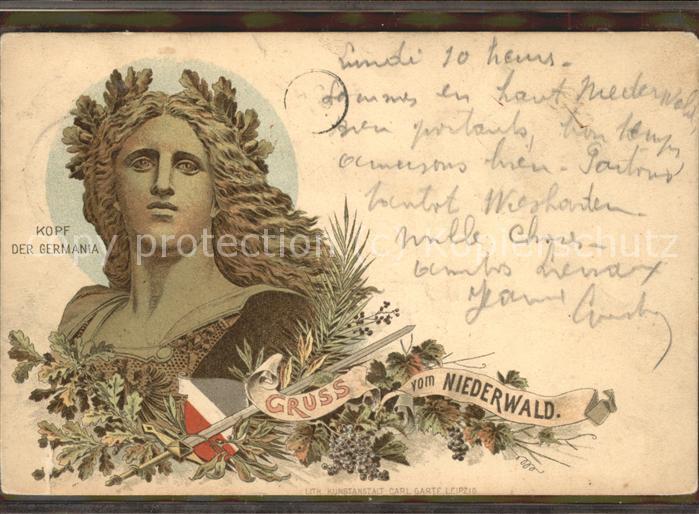 Lundi 10 heures -
Sommes en haut Niederwald
bien portants, bon temps
amusons bien - Partons
bientot Wiesbaden -
Mille choses -
Jeanne
KOPF
DER GERMANIA
GRUSS vom NIEDERWALD.
LITH. KUNSTANSTALT CARL GARTE LEIPZIG
copy protection (c) Kopierschutz